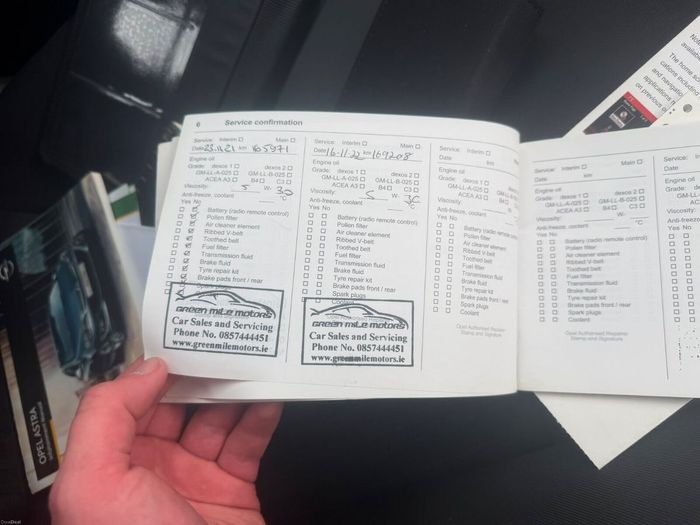 6 Service confirmation
Service: Interim Main
Date 23.11.21 km 165971
Engine oil
Grade: dexos 1 dexos 2
GM-LL-A-025 GM-LL-B-025
ACEA A3 B4 C3
Viscosity: 5 W- 30 °C
Anti-freeze, coolant
Yes No
Battery (radio remote control)
Pollen filter
Air cleaner element
Ribbed V-belt
Toothed belt
Fuel filter
Transmission fluid
Brake fluid
Tyre repair kit
Brake pads front / rear
green mile motors
Car Sales and Servicing
Phone No. 0857444451
www.greenmilemotors.ie
Service: Interim Main
Date 16-11-22 km 169208
Engine oil
Grade: dexos 1 dexos 2
GM-LL-A-025 GM-LL-B-025
ACEA A3 B4 C3
Viscosity: 5 W- 30 °C
Anti-freeze, coolant
Yes No
Battery (radio remote control)
Pollen filter
Air cleaner element
Ribbed V-belt
Toothed belt
Fuel filter
Transmission fluid
Brake fluid
Tyre repair kit
Brake pads front / rear
Spark plugs
green mile motors
Car Sales and Servicing
Phone No. 0857444451
www.greenmilemotors.ie
Service: Interim
Date km
Engine oil
Grade: dexos 1
GM-LL-A-025
ACEA A3
Viscosity:
Anti-freeze, coolant
Yes No
Battery (radio remote
Pollen filter
Air cleaner element
Ribbed V-belt
Toothed belt
Fuel filter
Transmission fluid
Brake fluid
Tyre repair kit
Brake pads front
Spark plugs
Coolant
Opel Authorised Repairer
Stamp and Signature
Service: Interim Main
Date km
Engine oil
Grade: dexos 1 dexos 2
GM-LL-A-025 GM-LL-B-025
ACEA A3 B4 C3
Viscosity: W- °C
Anti-freeze, coolant
Yes No
Battery (radio remote control)
Pollen filter
Air cleaner element
Ribbed V-belt
Toothed belt
Fuel filter
Transmission fluid
Brake fluid
Tyre repair kit
Brake pads front / rear
Spark plugs
Coolant
Opel Authorised Repairer
Stamp and Signature
Service:
Date
Engine oil
Grade:
Viscosity:
Anti-freeze
Yes No
The home
cations included
and navigation
applications
on previous
OPEL ASTRA
DoneDeal